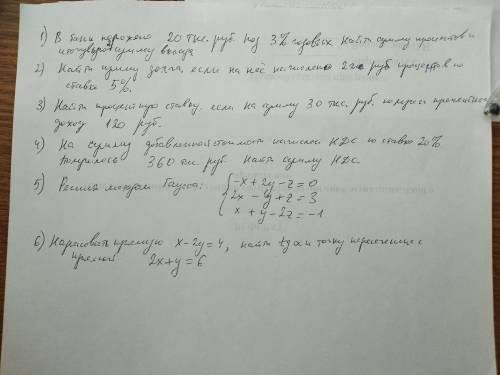 1) В банк положено 20 тыс. руб. под 3% годовых. Найти сумму процентов и
итоговую сумму вклада
2) Найти сумму долга, если на неё начислено 2 т. руб процентов по
ставке 5%.
3) Найти процентную ставку, если на сумму 30 тыс. руб. процентный
доход 120 руб.
4) На сумму добавленной стоимости начислен НДС по ставке 20%
получилось 360 тыс руб. Найти сумму НДС
5) Решить методом Гаусса: { -x + 2y - z = 0
2x - 4y + z = 3
x + y - 2z = -1
6) Нарисовать прямую x - 2y = 4, найти tg α и точку пересечения с
прямой 2x + y = 6